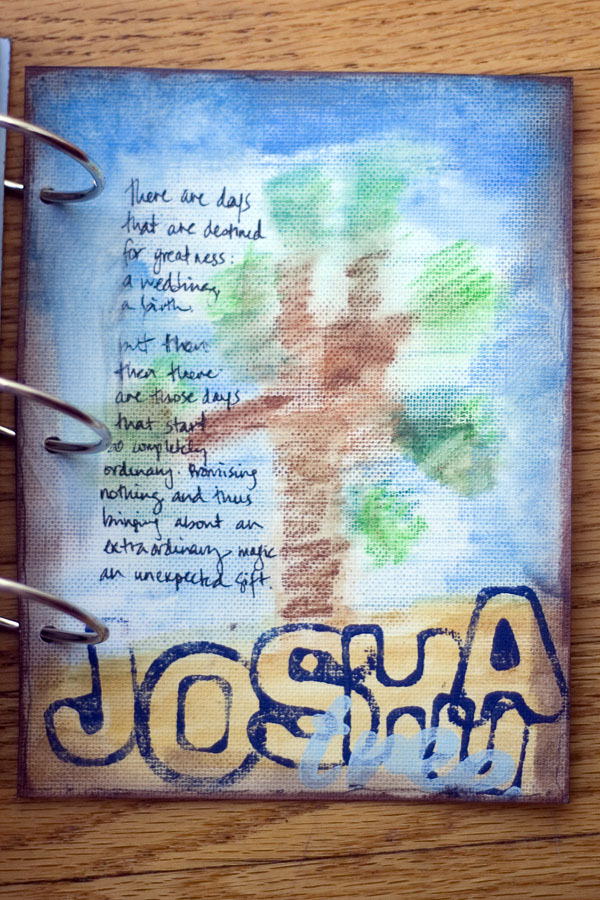 there are days
that are destined
for greatness:
a wedding,
a birth.
but then
then there
are those days
that start
so completely
ordinary. Promising
nothing and thus
bringing about an
extraordinary magic
an unexpected gift.
JOSHUA
tree